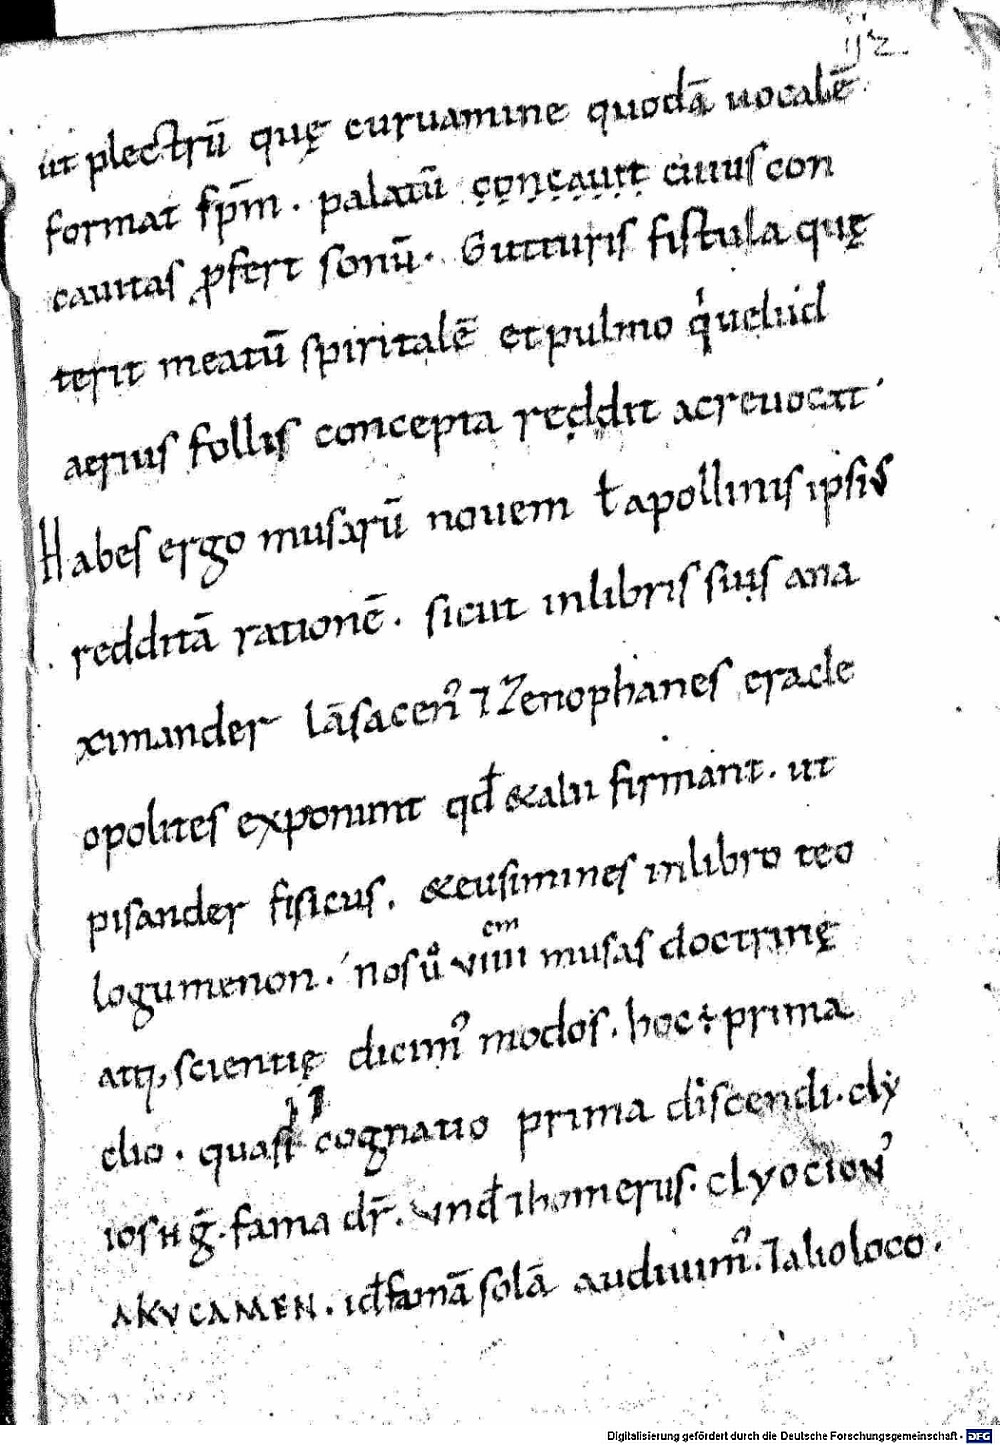 ijz
ut plectrū quę curuamine quodā uocalē
format sp̄m. palatū concauit cuius con
cauitas ꝓfert sonū. Gutturis fistula quę
terit meatū spiritalē et pulmo q̇ uelud
aerius follis concepta reddit ac reuocat
Habes ergo musarū nouem ꝉ apollinis ipsis
redditā rationē. sicut in libris suis ana
ximander lāsacen᾽ ⁊ Zenophanes eracle
opolites exponunt qđ & alii firmant. ut
pisander fisicus. & eusimines in libro teo
logumenon. nos ů viiii cm musas doctrinę
atq, scientię dicim᾽ modos. hoc ÷ prima
clio. quasi cognatio prima discendi. cly
ios H ḡ. fama dr̄. vnđ ⁊ homerus. clyocion᾽
AKVCAMEN. iđ famā solā audiuim᾽. ⁊ alio loco.
Digitalisierung gefördert durch die Deutsche Forschungsgemeinschaft - DFG